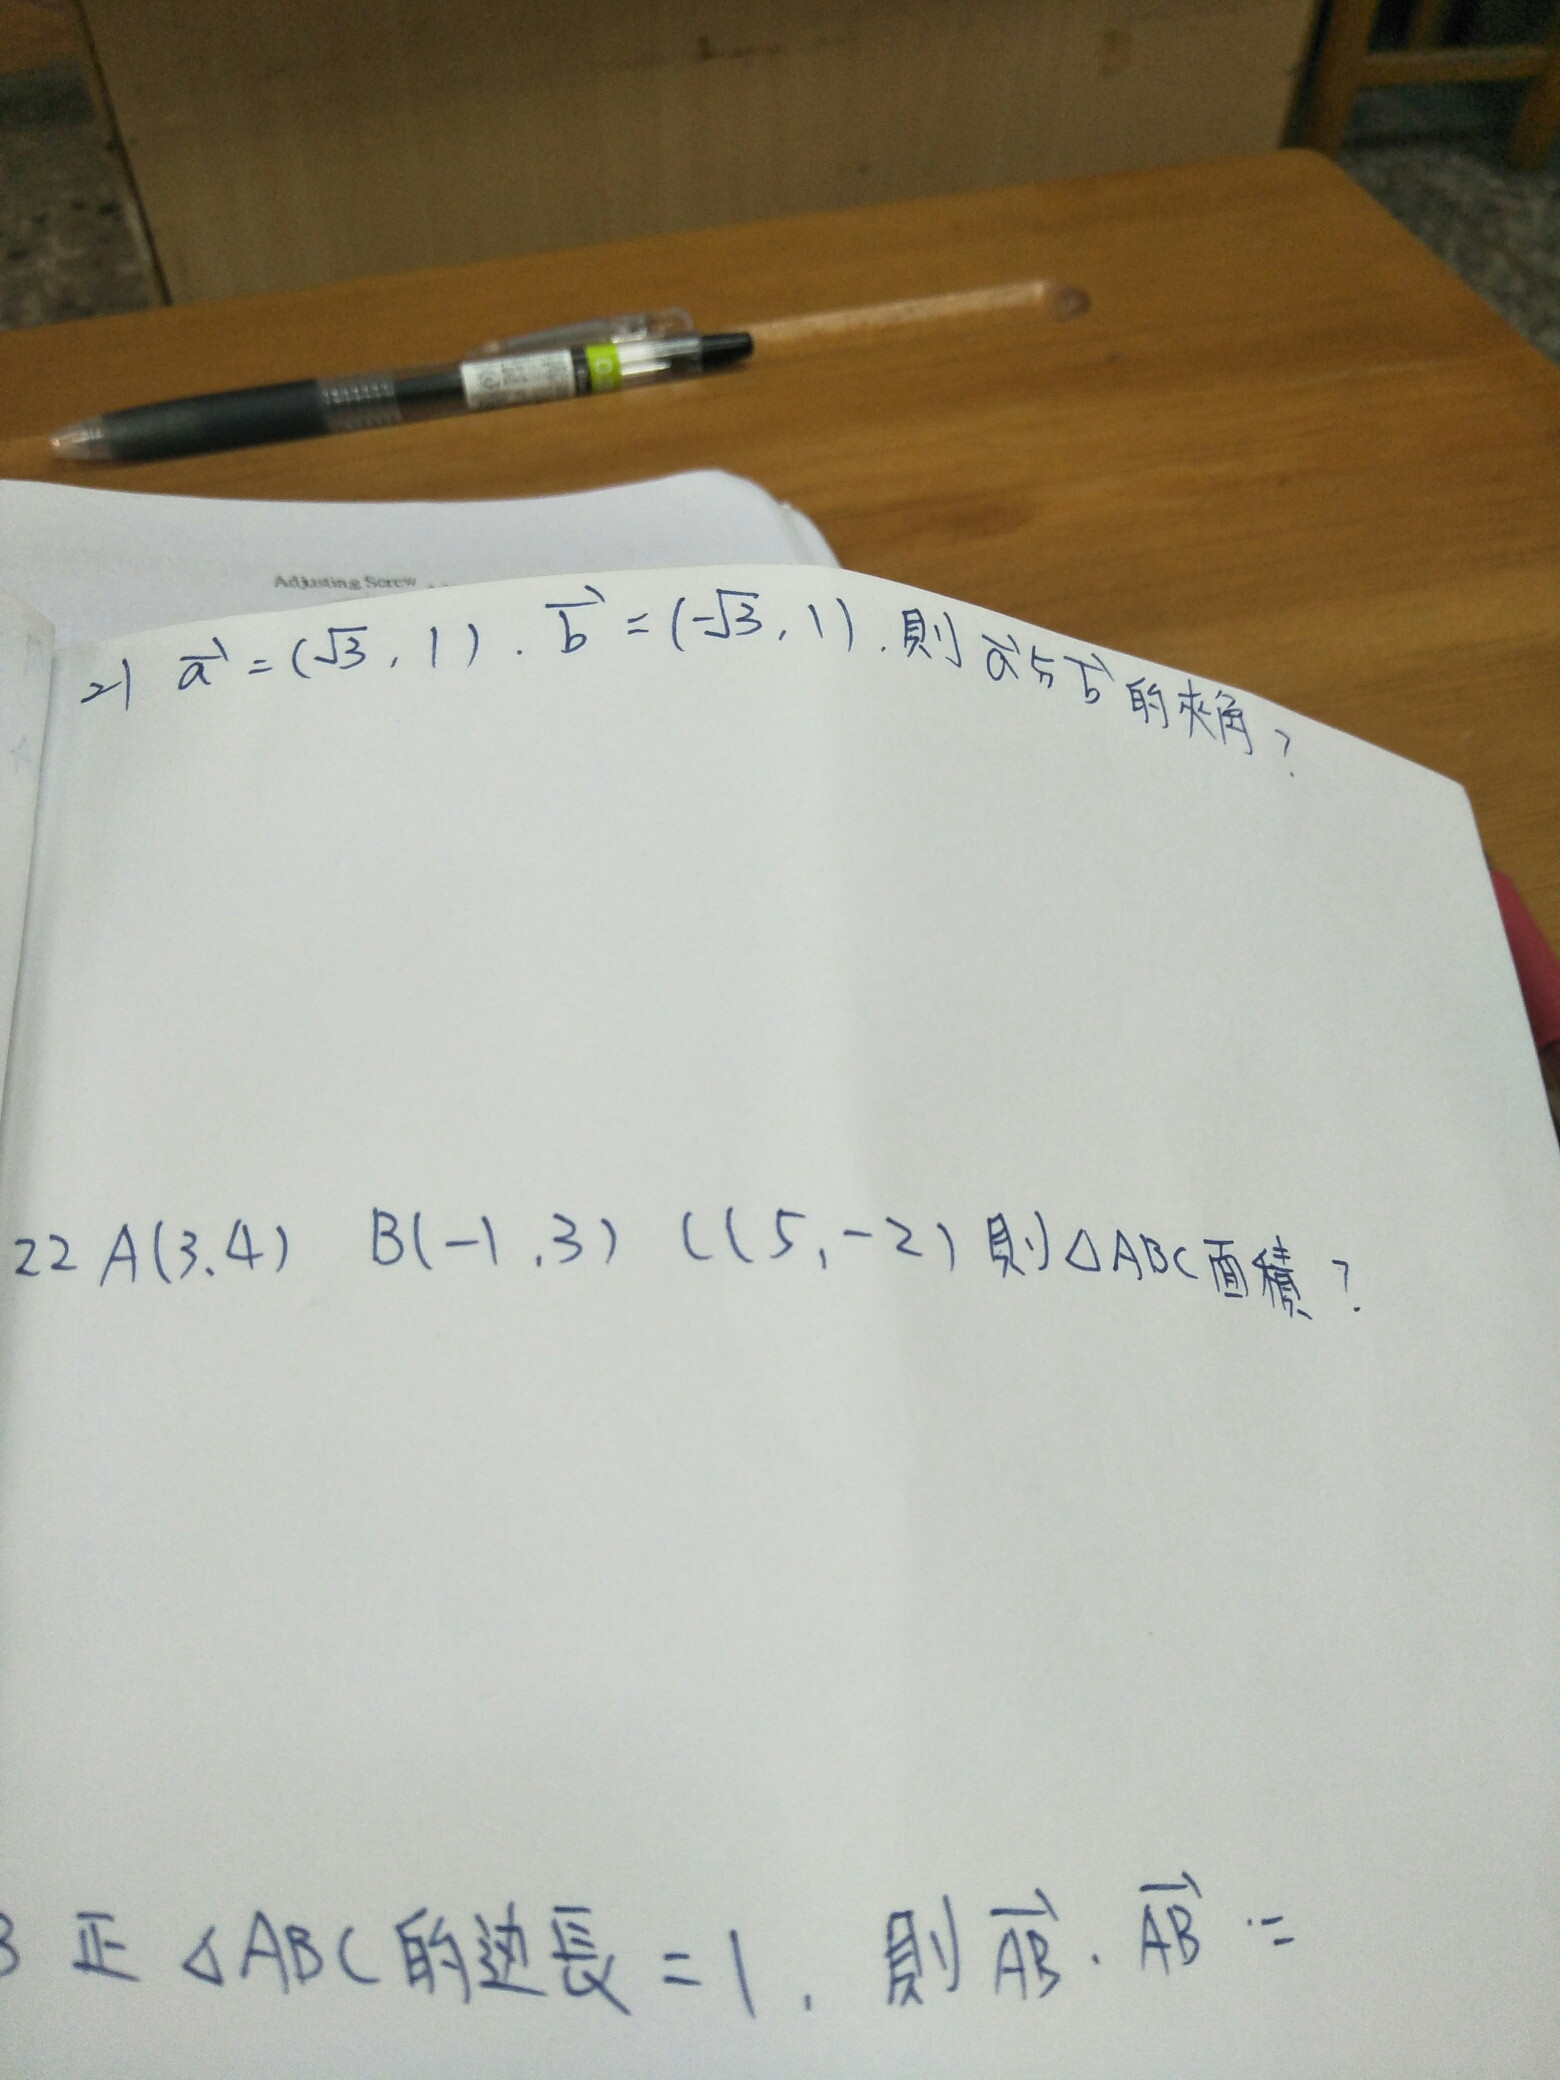 Adjusting Screw
21 a⃗ = (√3, 1). b⃗ = (-√3, 1). 則 a⃗ 与 b⃗ 的夾角?
22 A(3.4) B(-1,3) C(5,-2) 則△ABC面積?
3 正△ABC的边長=1, 則 AB⃗·AB⃗ =